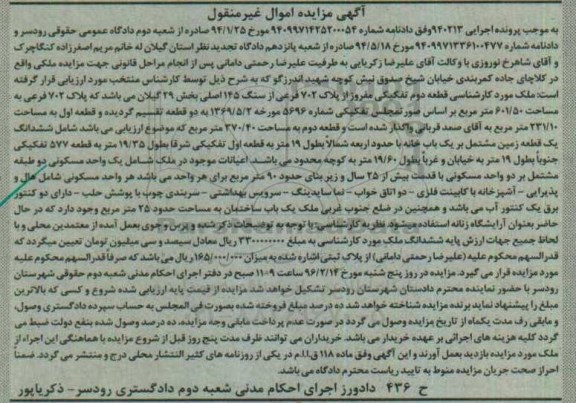 آگهی مزایده اموال غیرمنقول
به موجب پرونده اجرایی ۹۴۰۲۱۳ وفق دادنامه شماره ۹۴۰۹۹۷۱۴۲۵۲۰۰۰۵۴ مورخ ۹۴/۱/۲۵ صادره از شعبه دوم دادگاه عمومی حقوقی رودسر و
دادنامه شماره ۹۴۰۹۹۷۱۳۳۶۱۰۰۴۷۷ مورخ ۹۴/۵/۱۸ صادره از شعبه پانزدهم دادگاه تجدید نظر استان گیلان له خانم مریم اصغرزاده کنگاچرک
و آقای شاهرخ نوروزی با وکالت آقای علیرضا زکریایی به طرفیت علیرضا رحمتی دامانی پس از انجام مراحل قانونی جهت مزایده ملکی واقع
در کلاچای جاده کمربندی خیابان شیخ صدوق نبش کوچه شهید اندرزگو که به شرح ذیل توسط کارشناس منتخب مورد ارزیابی قرار گرفته
است: ملک مورد کارشناسی قطعه دوم تفکیکی مفروز از پلاک ۷۰۲ فرعی از سنگ ۱۴۵ اصلی بخش ۲۹ گیلان می باشد که پلاک ۷۰۲ فرعی به
مساحت ۶۰۱/۵۰ متر مربع بر اساس صورتمجلس تفکیکی شماره ۵۶۹۶ مورخه ۱۳۶۹/۵/۲ به دو قطعه تقسیم گردیده و قطعه اول به مساحت
۲۳۱/۱۰ متر مربع به آقای صمد قربانی واگذار شده است و قطعه دوم به مساحت ۳۷۰/۴۰ متر مربع که موضوع ارزیابی می باشد شامل ششدانگ
یک قطعه زمین مشتمل بر یک باب خانه با حدود اربعه شمالاً بطول ۱۹ متر به قطعه اول تفکیکی شرقاً بطول ۱۹/۳۵ متر به قطعه ۵۷۷ تفکیکی
جنوباً بطول ۱۹ متر به خیابان و غرباً بطول ۱۹/۶۰ متر به کوچه محدود می باشد. اعیانات موجود در ملک شامل یک واحد مسکونی دو طبقه
مشتمل بر دو واحد مسکونی با قدمت بیش از ۲۵ سال و زیر بنای حدود ۹۰ متر مربع برای هر واحد می باشد هر واحد مسکونی شامل هال و
پذیرایی - آشپزخانه با کابینت فلزی - دو اتاق خواب - نما سایدینگ - سرویس بهداشتی - سربندی چوب با پوشش حلب - دارای دو کنتور
برق یک کنتور آب می باشد و همچنین در ضلع جنوب غربی ملک یک باب ساختمان به مساحت حدود ۲۵ متر مربع وجود دارد که در حال
حاضر بعنوان آرایشگاه زنانه استفاده میشود نظریه کارشناسی با توجه به توضیحات ذکر شده و پرس و جوی بعمل آمده از معتمدین محلی و با
لحاظ جمیع جهات ارزش پایه ششدانگ ملک مورد کارشناسی به مبلغ ۳۳۰۰۰۰۰۰۰۰ ریال معادل سیصد و سی میلیون تومان تعیین میگردد که
قدرالسهم محکوم علیه (علیرضا رحمتی دامانی) از پلاک ثبتی اشاره شده به میزان ریال می باشد که صرفاً قدرالسهم محکوم علیه
مورد مزایده قرار می گیرد. مزایده در روز پنج شنبه مورخ ۹۶/۲/۱۴ ساعت ۹-۱۱ صبح در دفتر اجرای احکام مدنی شعبه دوم حقوقی شهرستان
رودسر با حضور نماینده محترم دادستان شهرستان رودسر تشکیل خواهد شد. مزایده از قیمت پایه ارزیابی شده شروع و کسی که بالاترین
مبلغ را پیشنهاد نماید برنده مزایده شناخته خواهد شد. ده درصد مبلغ فروخته شده بصورت فی المجلس به حساب سپرده دادگستری وصول،
و مابقی رف مدت یکماه از تاریخ مزایده وصول می گردد در صورت عدم پرداخت مابقی وجه مزایده، ده درصد وصول شده بنفع دولت ضبط می
گردد کلیه هزینه های اجرائی بر عهده خریدار می باشد. خریداران می توانند ظرف مدت پنج روز قبل از شروع مزایده با هماهنگی این اجراء از
ملک مورد مزایده بازدید بعمل آورند و این آگهی وفق ماده ۱۱۸ ق.ا.ا.م در یکی از روزنامه های کثیر الانتشار محلی درج و منتشر می گردد. ضمناً
احراز صحت جریان مزایده منوط به تایید ریاست محترم دادگاه می باشد.
ح ۴۳۶ دادورز اجرای احکام مدنی شعبه دوم دادگستری رودسر - ذکریاپور